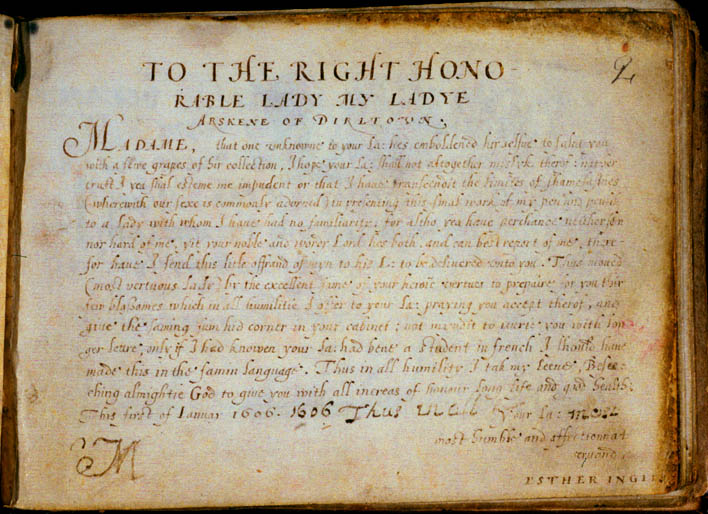 2
TO THE RIGHT HONO-
RABLE LADY MY LADYE
ARSKENE OF DIRLTOVN.
MADAME, that one vnknowne to your La: hes emboldened hir selfue to salut you
with a fewe grapes of hir collection, I hope your La: shall not altogether mislyk therof: nather
trust I yea shal esteme me impudent or that I haue transcendit the limites of shamefastnes
(wherewith our sexe is commonly adorned) in presenting this smal work of my pen and
to a Lady with whom I haue had no familiaritie. for altho yea haue perchance nether sen
nor hard of me, yit your noble and worthy Lord hes both, and can best report of me, there-
for haue I send this litle offrand of myn to his L: to be delivered vnto you. Thus moued
(most vertuous Lady) by the excellent fame of your heroic vertues to prepaire for you thir
few bloßomes which in all humilitie I offer to your La: praying you accept therof, and
giue the saming sum hid corner in your cabinet: not to wirrie you with lon
ger letre, only if I had knowen your La: had bene a student in french I should haue
made this in the samin language. Thus in all humility I tak my Leeue, Besee-
ching almightie God to giue you with all increas of honour long life and gud health.
This first of Ianuar 1606. 1606 Thus Your La:
most humble and affectionnat
ESTHER INGLIS
M